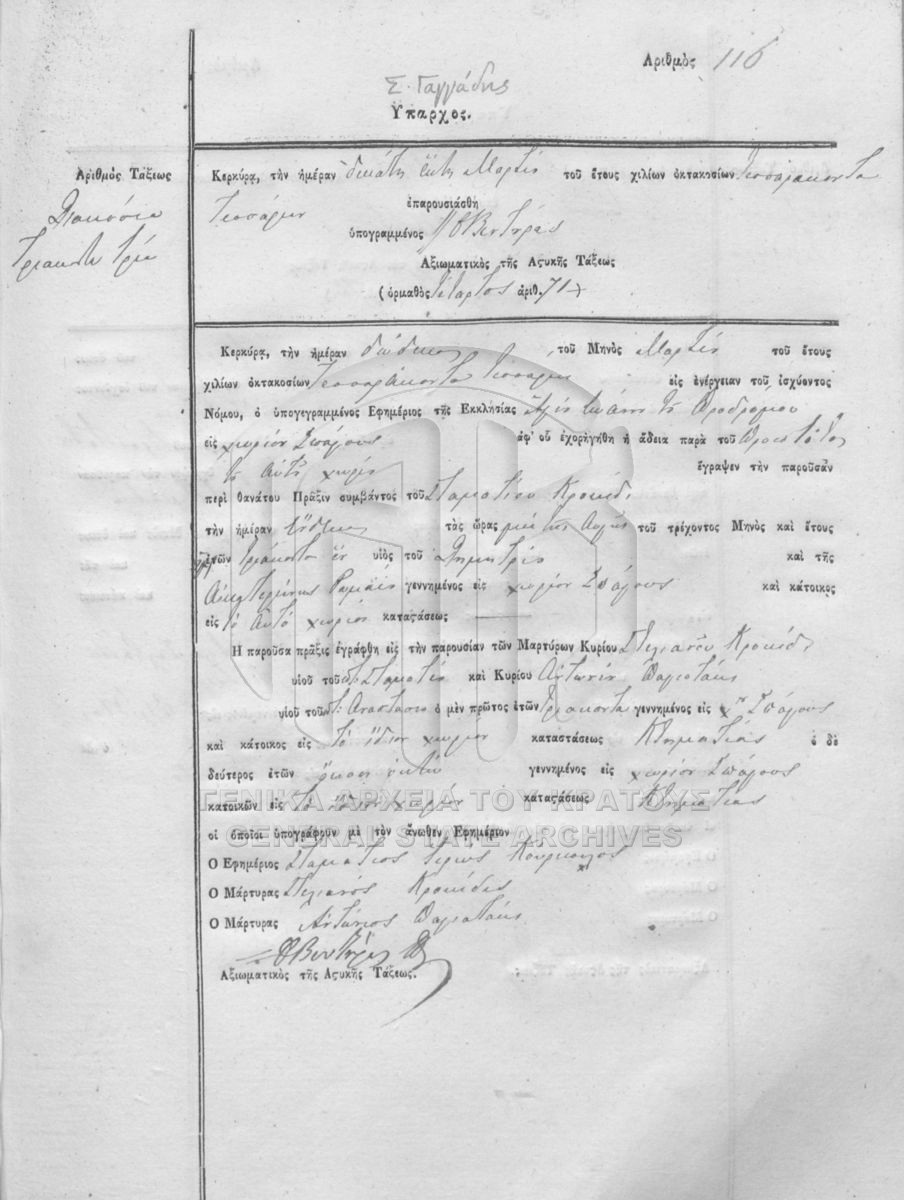 Ἀριθμὸς 116
Σ. Γαγγάδης
Ὑπαρχος.
Ἀριθμὸς Τάξεως
Διακόσια
τριακοντα τρία
Κερκύρᾳ, τὴν ἡμέραν δεκάτη ἕκτη Μαρτίου τοῦ ἔτους χιλίων ὀκτακοσίων τεσσαράκοντα
τεσσάρων
ἐπαρουσιάσθη
ὑπογραμμένος Βεντήρας
Ἀξιωματικὸς τῆς Ἀςυκῆς Τάξεως
(ὁρμαθὸς τέταρτος ἀριθ. 71)
Κερκύρᾳ, τὴν ἡμέραν δώδεκα τοῦ Μηνὸς Μαρτίου τοῦ ἔτους
χιλίων ὀκτακοσίων τεσσαράκοντα τεσσάρων εἰς ἐνέργειαν τοῦ ἰσχύοντος
Νόμου, ὁ ὑπογεγραμμένος Ἐφημέριος τῆς Ἐκκλησίας Ἁγίου Ἰωάννου τοῦ Προδρόμου
εἰς χωρίον Σπάγους ἀφ' οὗ ἐχορηγήθη ἡ ἄδεια παρὰ τοῦ
τοῦ Αὐτοῦ χωρίου ἔγραψεν τὴν παροῦσαν
περὶ θανάτου Πρᾶξιν συμβάντος τοῦ Σταματίου Κροκίδι
τὴν ἡμέραν ἕνδεκα τὰς ὥρας μία της Αυγῆς τοῦ τρέχοντος Μηνὸς καὶ ἔτους
ἐτῶν τριάκοντα ἓν υἱὸς τοῦ Δημητρίου καὶ τῆς
Αἰκατερίνης γεννημένος εἰς χωρίον Σπάγους καὶ κάτοικος
εἰς τὸ Αὐτὸ χωρίον καταςάσεως
Ἡ παροῦσα πρᾶξις ἐγράφθη εἰς τὴν παρουσίαν τῶν Μαρτύρων Κυρίου Στελιανοῦ Κροκίδι
υἱοῦ τοῦ Σταματίου καὶ Κυρίου Ἀντωνίου Παγιατάκης
υἱοῦ τοῦ Ἀναστασίου ὁ μὲν πρῶτος ἐτῶν τριάκοντα γεννημένος εἰς χον Σπάγους
καὶ κάτοικος εἰς τὸ ἴδιον χωρίον καταστάσεως Κτηματίας ὁ δὲ
δεύτερος ἐτῶν εἴκοσι ὀκτώ γεννημένος εἰς χωρίον Σπάγους
κατοικῶν εἰς τὸ ἴδιον χωρίον καταςάσεως Κτηματίας
οἱ ὁποῖοι ὑπογράφουν μὲ τὸν ἄνωθεν Ἐφημέριον
Ὁ Ἐφημέριος Σταμάτιος ἱερεὺς
Ὁ Μάρτυρας Στελιανός Κροκίδις
Ὁ Μάρτυρας Ἀντώνιος Παγιατάκης
Βεντήρας
Ἀξιωματικὸς τῆς Ἀςυκῆς Τάξεως.
ΓΕΝΙΚΑ ΑΡΧΕΙΑ ΤΟΥ ΚΡΑΤΟΥΣ
GENERAL STATE ARCHIVES